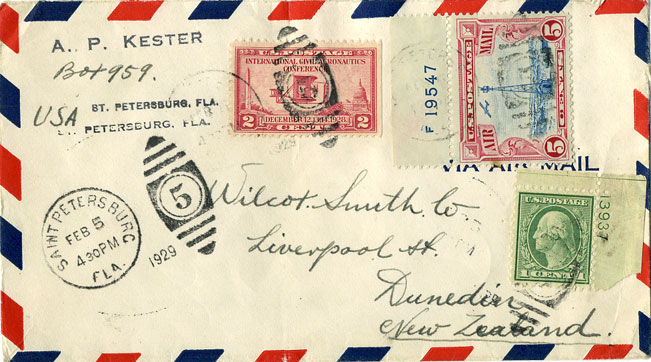 A. P. KESTER
Box 959.
USA
ST. PETERSBURG, FLA.
ST. PETERSBURG, FLA.
U.S. POSTAGE
INTERNATIONAL CIVIL AERONAUTICS
CONFERENCE
2 2
DECEMBER 12.13.14. 1928
CENTS
F 19547
5 AIR MAIL 5
U.S. POSTAGE
5 CENTS 5
VIA AIR MAIL
SAINT PETERSBURG
FEB 5
4 30 PM
FLA.
5
1929
Wilcox. Smith. Co
Liverpool St.
Dunedin
New Zealand.
U.S. POSTAGE
1 CENT 1